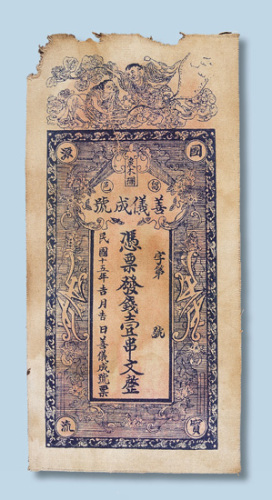 票
流
善儀成號
字第　號
憑票發錢壹串文整
民國十五年吉月吉日善儀成號票